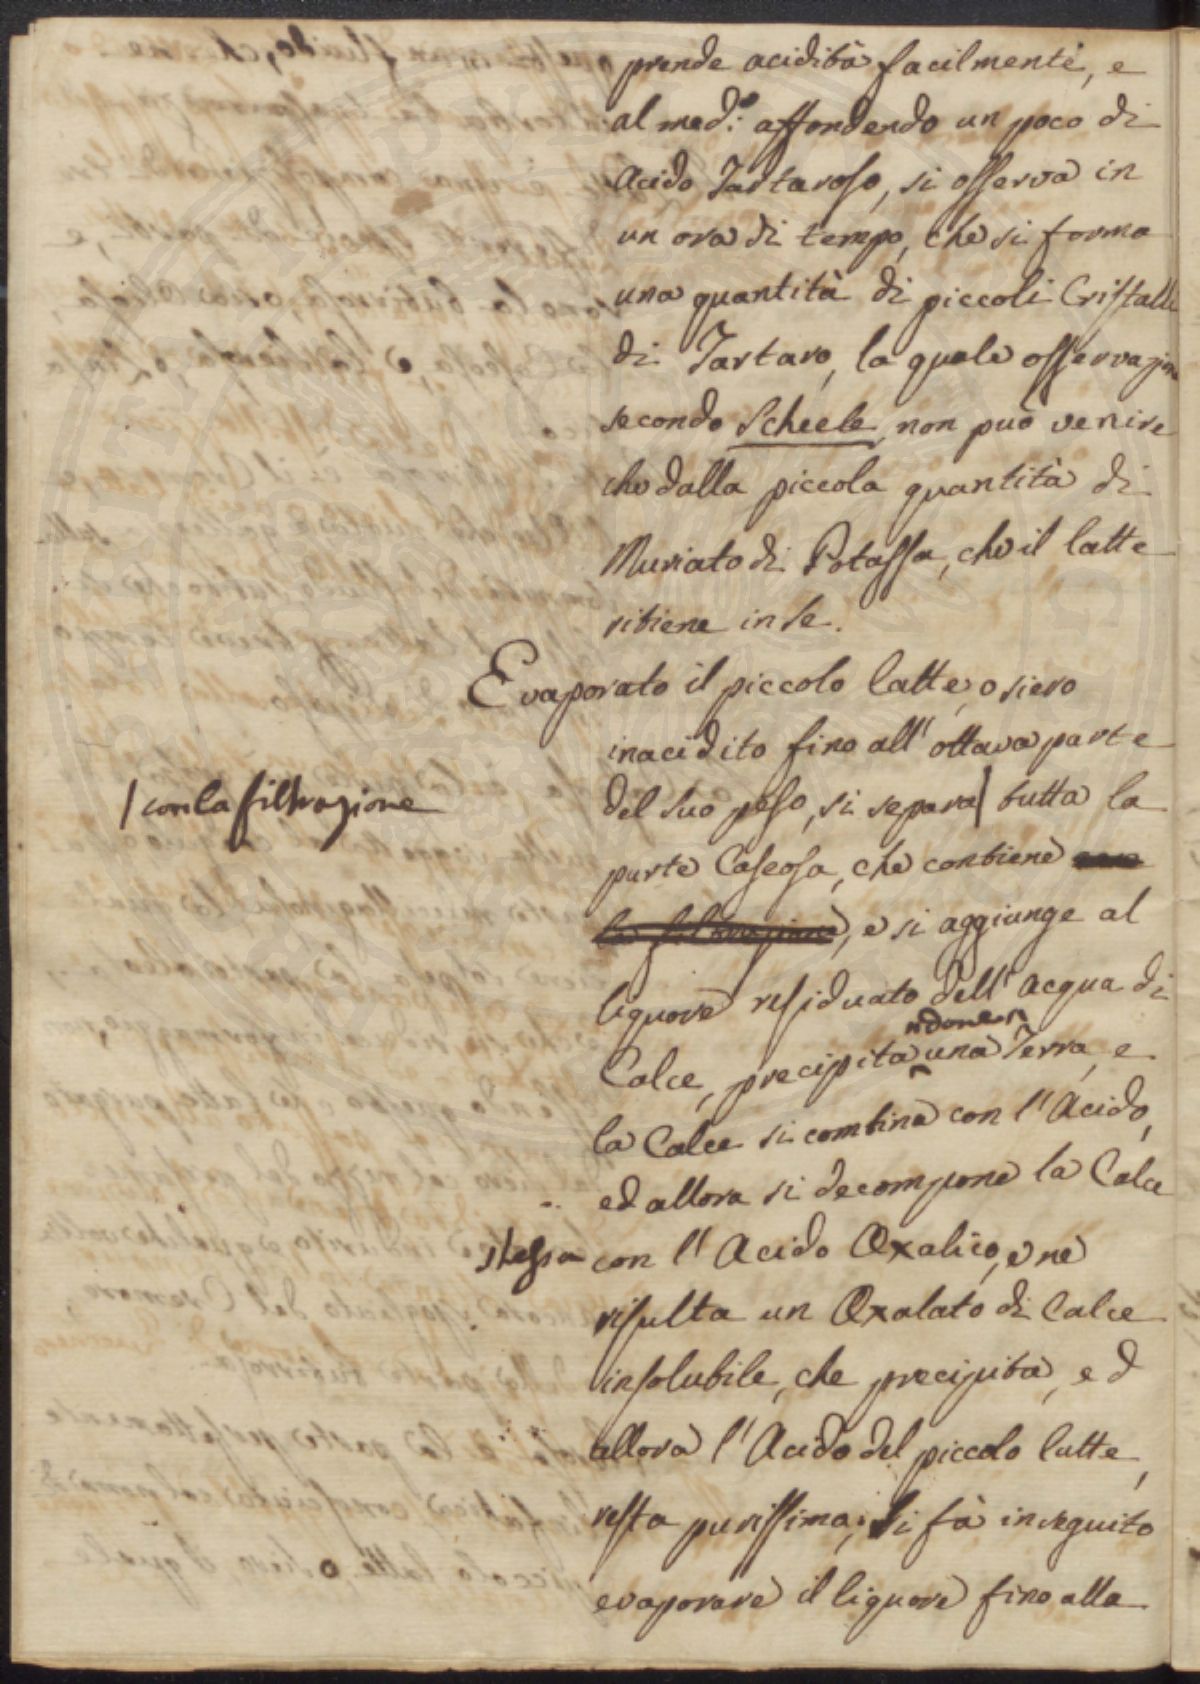 prende acidità facilmente, e
al med.o affondendo un poco di
Acido Tartaroso, si osserva in
un ora di tempo, che si forma
una quantità di piccoli Cristalli
di Tartaro, la quale osservazione
secondo Scheele, non può venire
che dalla piccola quantità di
Muriato di Potassa, che il latte
ritiene in se.
Evaporato il piccolo latte, o siero
inacidito fino all' ottava parte
/ con la filtrazione
del suo peso, si separa/ tutta la
parte Caseosa, che contiene
la filtrazione, e si aggiunge al
liquore residuato dell' acqua di
ndone
Calce, precipita una Terra, e
la Calce si combina con l' Acido,
ed allora si decompone la Calce
stessa con l' Acido Oxalico, e ne
risulta un Oxalato di Calce
insolubile, che precipita, ed
allora l' Acido del piccolo latte,
resta purissima; si fà in seguito
evaporare il liquore fino alla